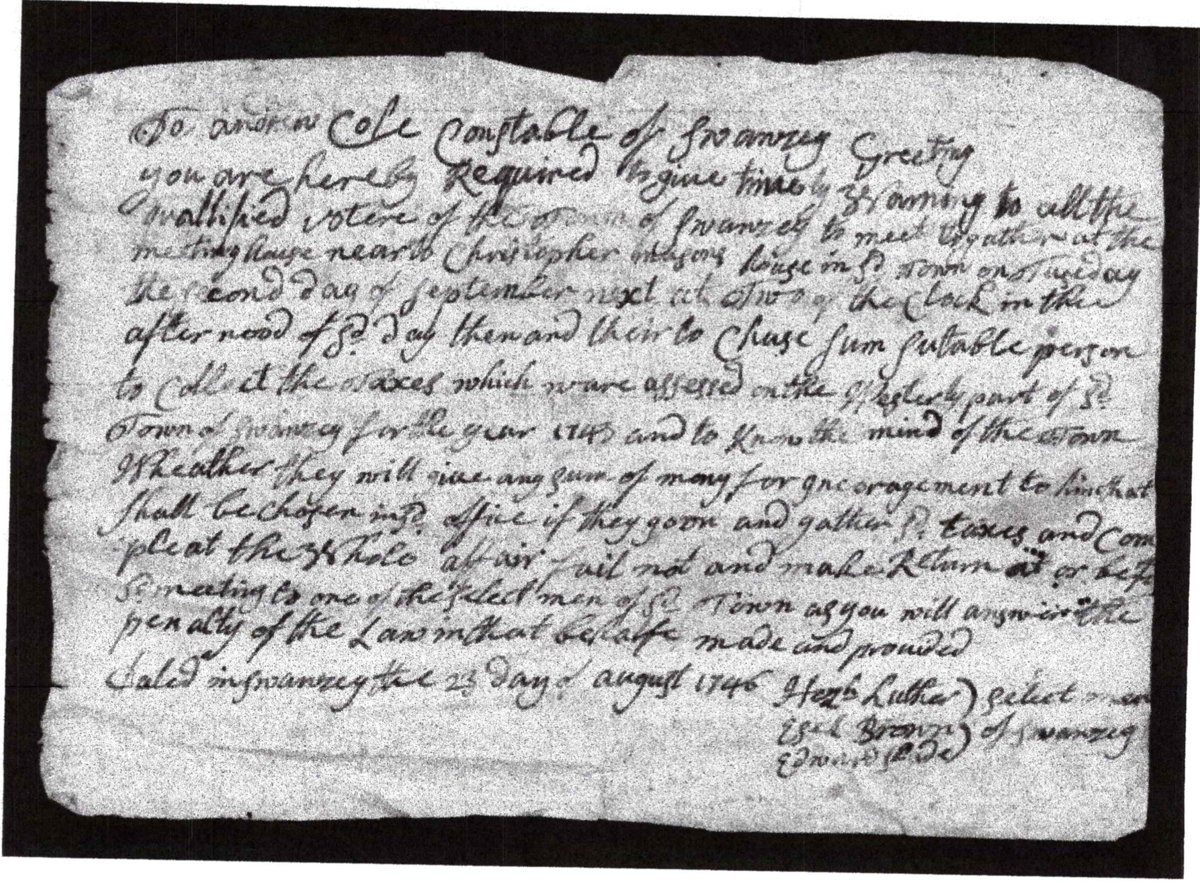 To andrew Cole Constable of Swanzey Greeting
you are hereby Required to give timely Warning to all the
quallified voters of the Town of Swanzey to meet togather at the
meeting house near to Christopher masons house in sd Town on Tuseday
the second day of September next at Two of the Clock in the
after nood of sd day then and their to Chuse sum sutable person
to Collect the Taxes which ware assessed on the Westerly part of sd
Town of Swanzey for the year 1745 and to Know the mind of the Town
Wheather they will give any sum of mony for yncoragement to him that
shall be chosen in sd office if they goon and gather sd taxes and Com
pleat the Whole affair fail not and make Return at or befo
sd meeting to one of the select men of sd Town as you will answer the
penalty of the Law in that behalfe made and provided
Dated in Swanzey the 23 day of august 1746
Hezh Luther ) select men
Brown ) of Swanzey
Edward Slade )